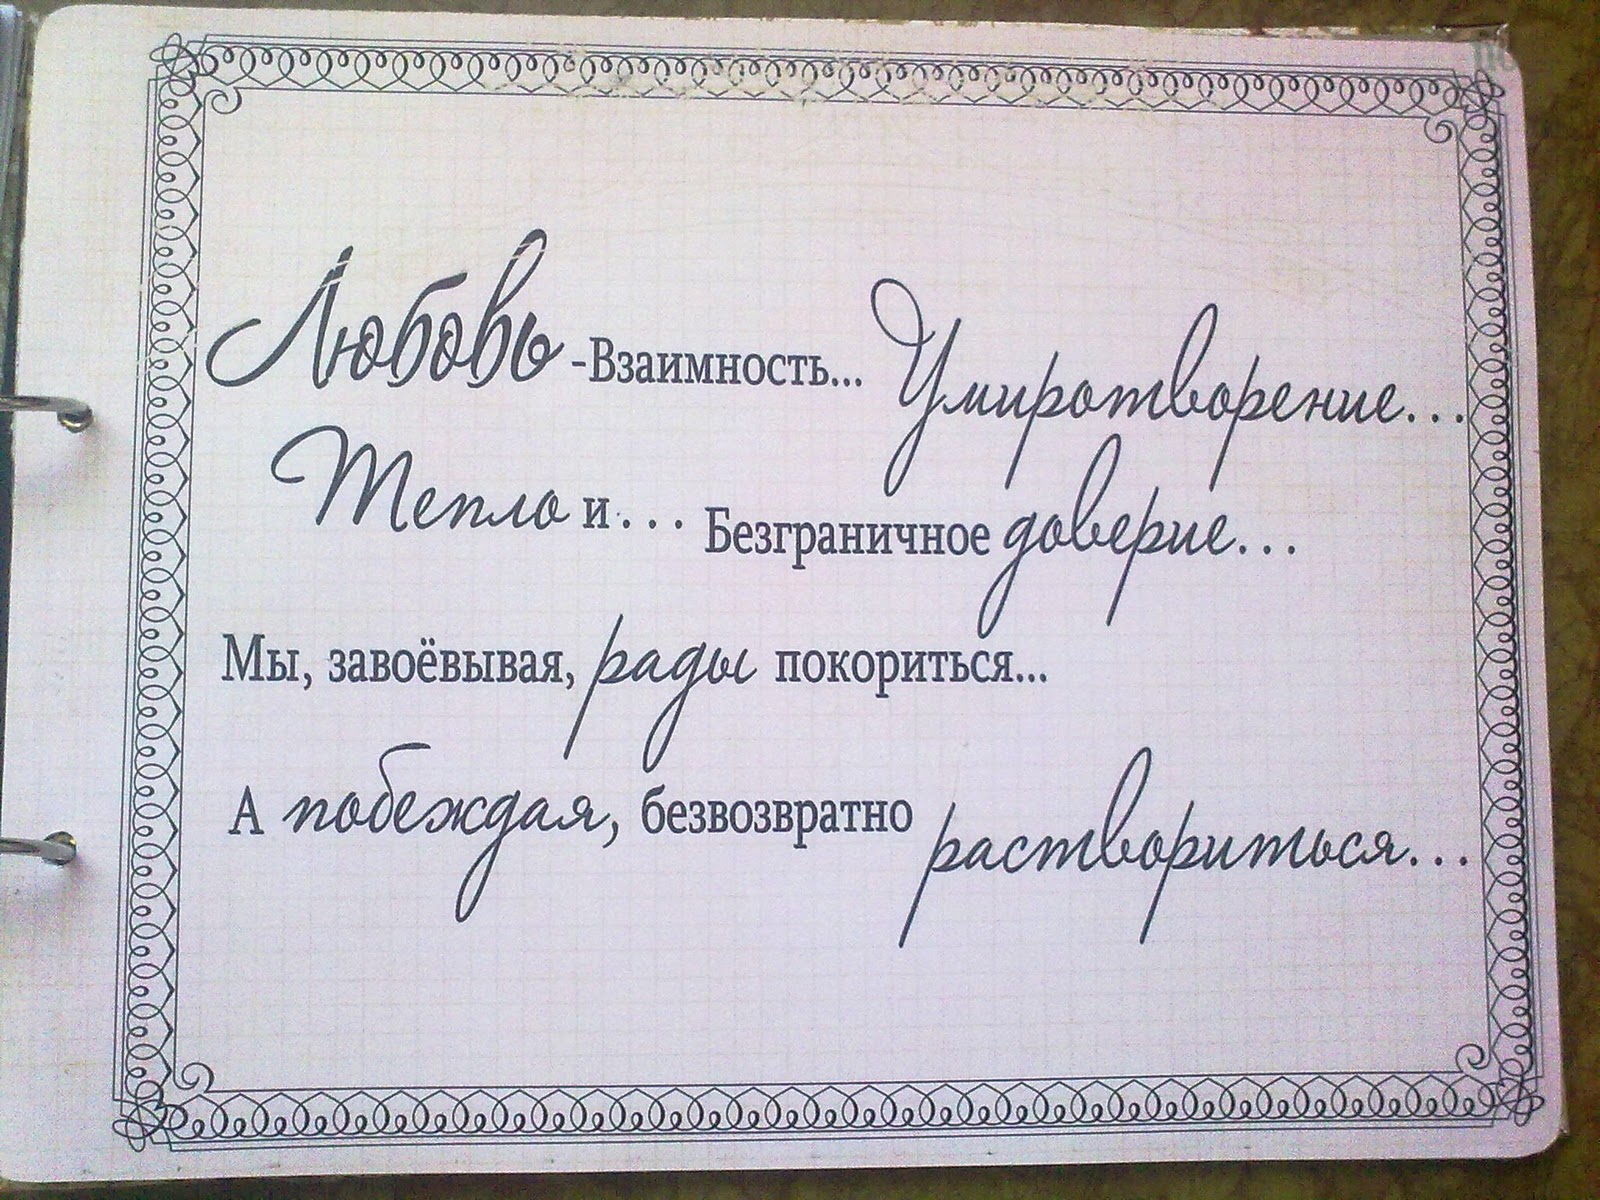 Любовь -Взаимность... Умиротворение...
Тепло и... Безграничное доверие...
Мы, завоёвывая, рады покориться...
А побеждая, безвозвратно раствориться...